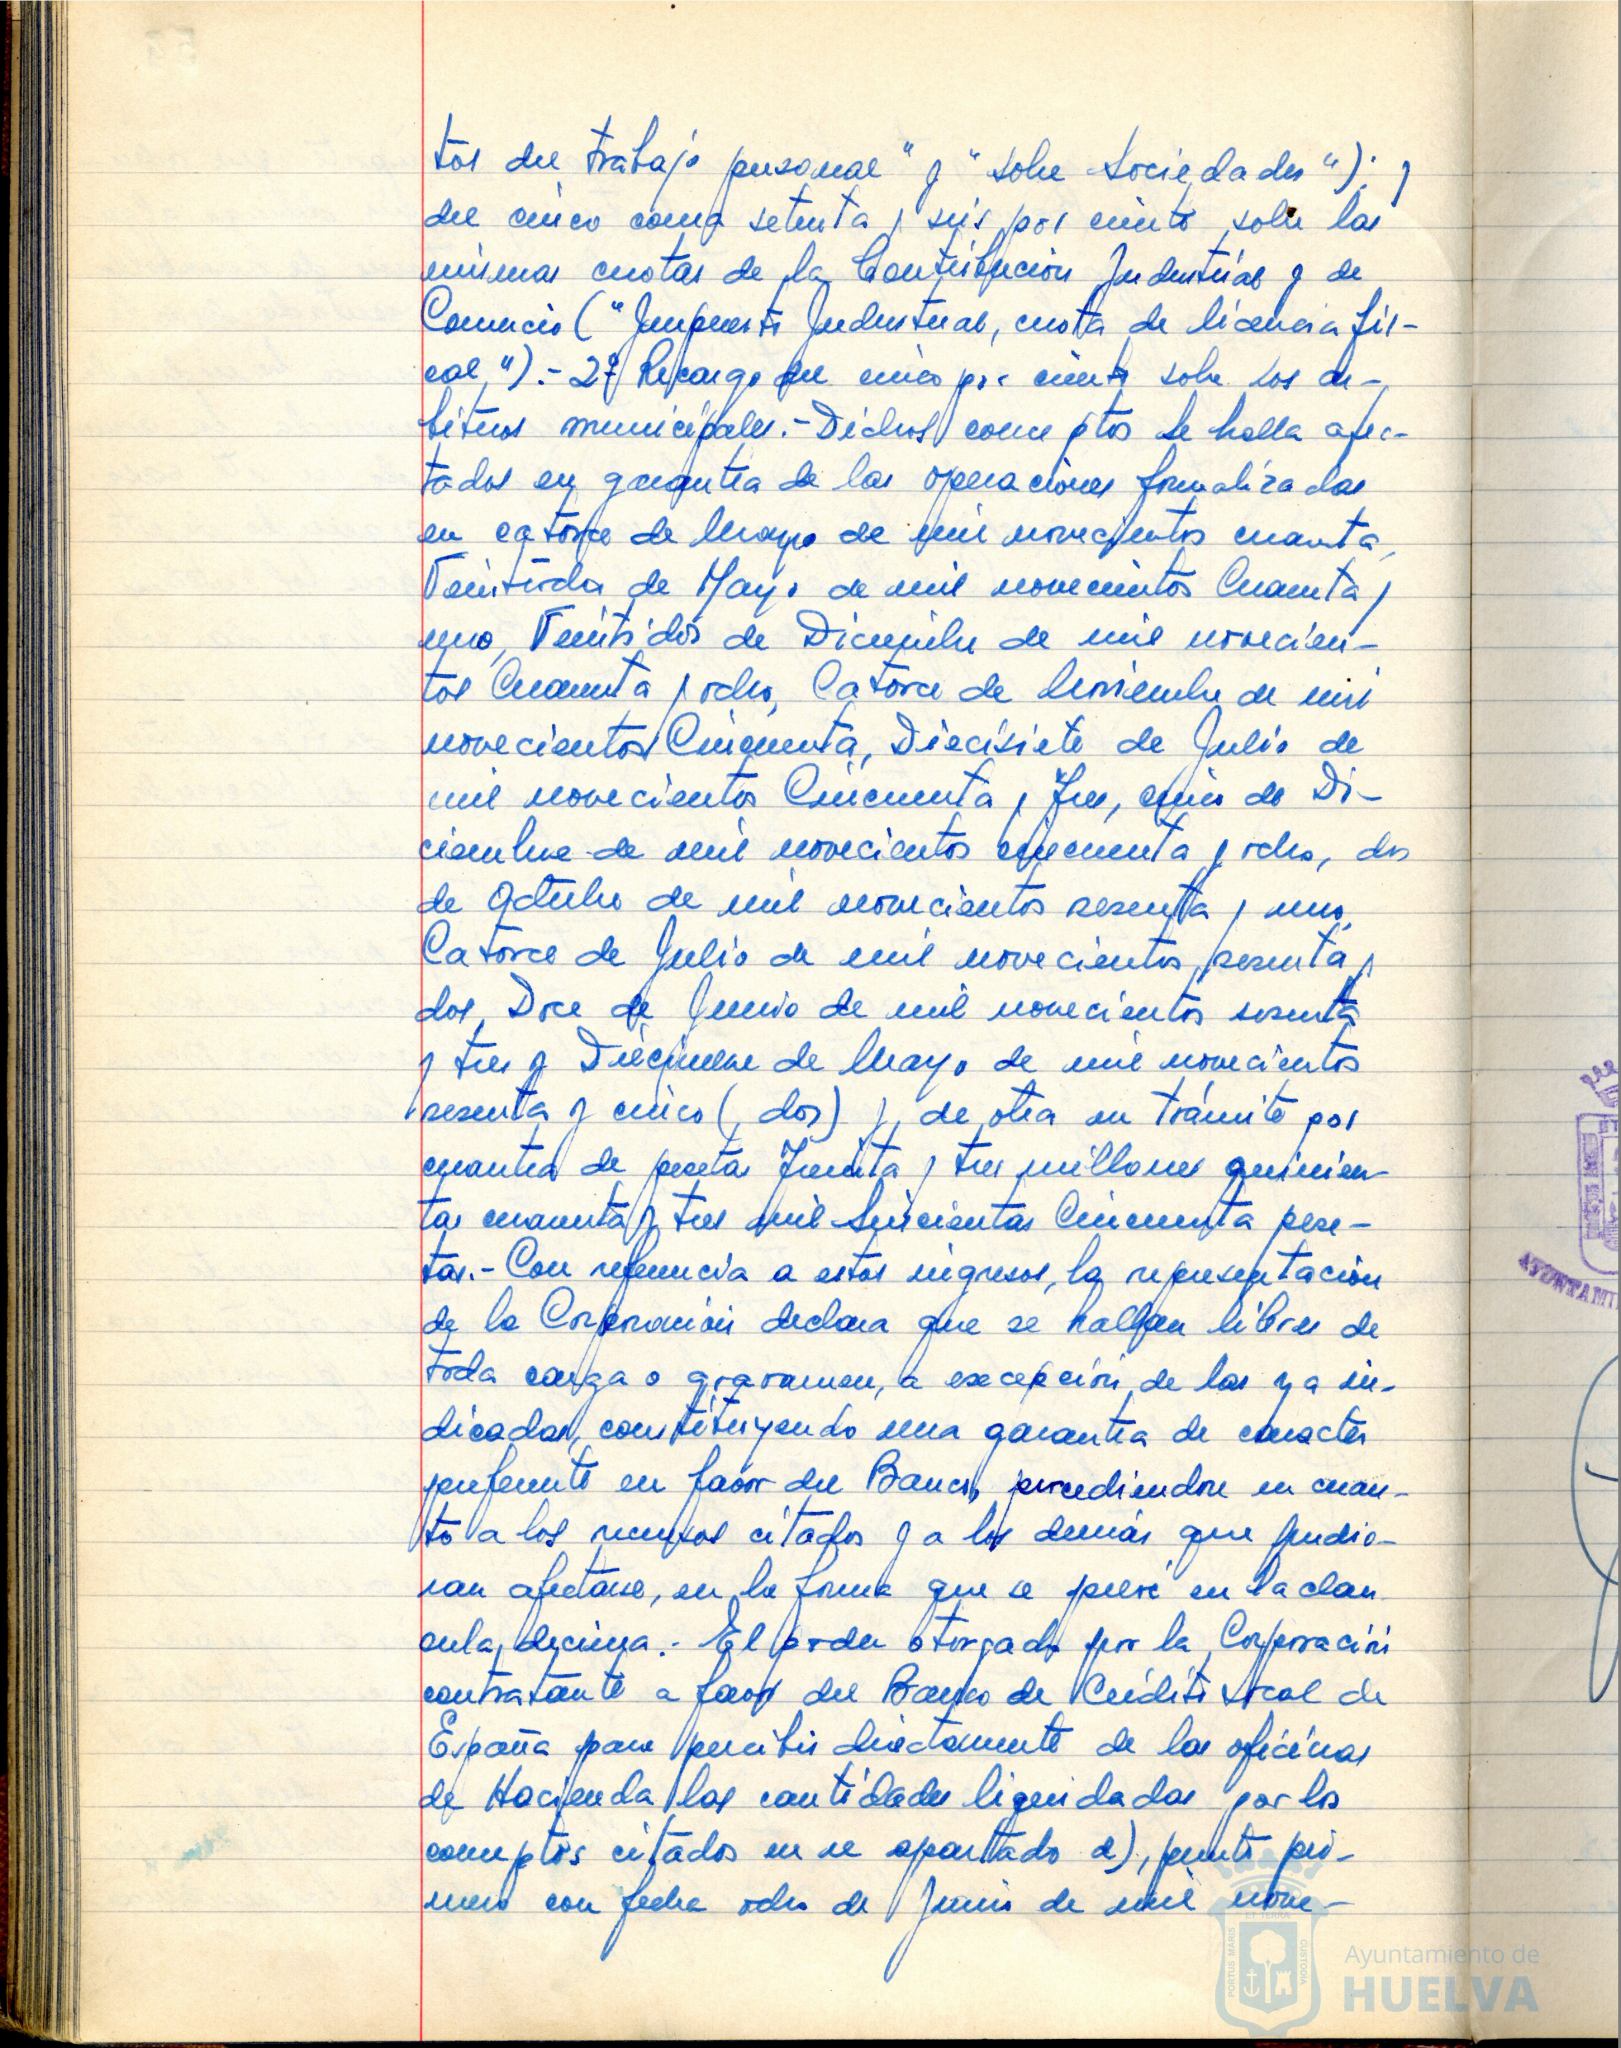 tos del trabajo personal" y "sobre Sociedades"); y
del cinco coma setenta y seis por ciento sobre las
mismas cuotas de la Contribución Industrial y de
Comercio ("Impuesto Industrial, cuota de licencia fis-
cal"). - 2º Recargo del cinco por ciento sobre los ar-
bitrios municipales. - Dichos conceptos se halla afec-
tados en garantía de las operaciones formalizadas
en catorce de Mayo de mil novecientos cuarenta,
Veintitrés de Mayo de mil novecientos Cuarenta y
uno, Veintidós de Diciembre de mil novecien-
tos Cuarenta y ocho, Catorce de Noviembre de mil
novecientos Cincuenta, Diecisiete de Julio de
mil novecientos Cincuenta y Tres, cinco de Di-
ciembre de mil novecientos cincuenta y ocho, dos
de Octubre de mil novecientos sesenta y uno,
Catorce de Julio de mil novecientos sesenta y
dos, Doce de Junio de mil novecientos sesenta
y tres y Diecinueve de Mayo de mil novecientos
sesenta y cinco (dos) y, de otra en trámite por
cuantía de pesetas Treinta y tres millones quinien-
tas cuarenta y tres mil Seiscientas Cincuenta pese-
tas. - Con referencia a estos ingresos, la representación
de la Corporación declara que se hallan libres de
toda carga o gravamen, a excepción de las ya in-
dicadas, constituyendo una garantía de caracter
preferente en favor del Banco, procediendose en cuan-
to a los recursos citados y a los demás que pudie-
ran afectarse, en la forma que se prevé en la clau
sula decima. - El poder otorgado por la Corporación
contratante a favor del Banco de Crédito Local de
España para percibir directamente de las oficinas
de Hacienda las cantidades liquidadas por los
conceptos citados en el apartado a), punto pri-
mero con fecha ocho de Junio de mil nove-
AYUNTAMI
PORTUS MARIS
ET TERRAE
CUSTODIA
Ayuntamiento de
HUELVA